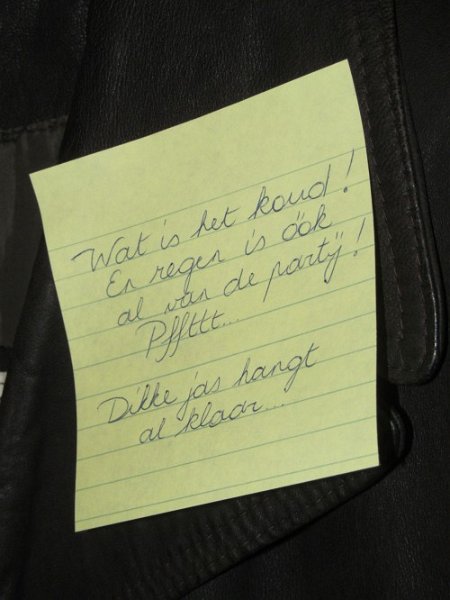 Wat is het koud!
En regen is óók
al van de partij!
Pffttt...
Dikke jas hangt
al klaar...